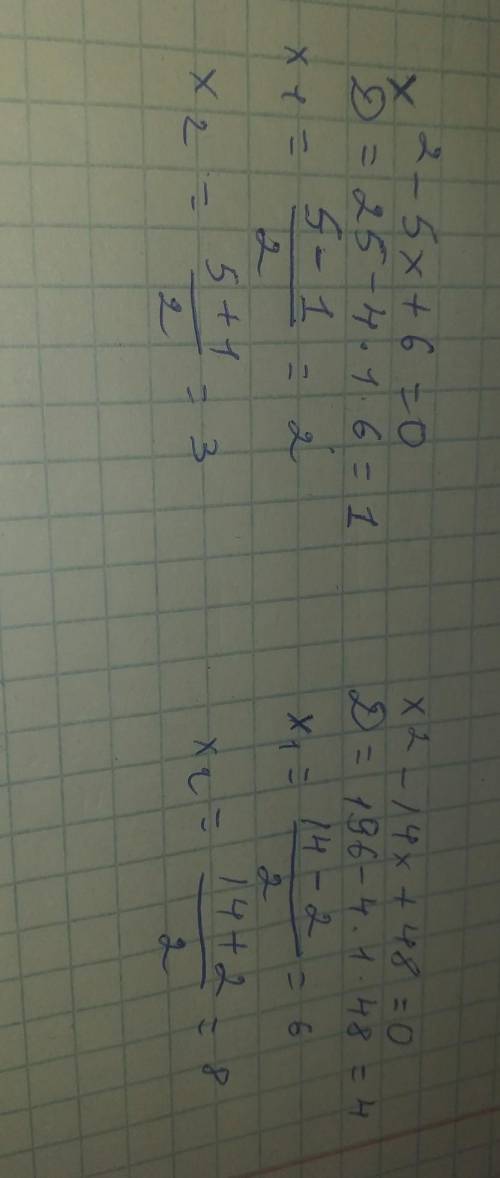 x² - 5x + 6 = 0
D = 25 - 4 · 1 · 6 = 1
x₁ = (5 - 1)/2 = 2
x₂ = (5 + 1)/2 = 3
x² - 14x + 48 = 0
D = 196 - 4 · 1 · 48 = 4
x₁ = (14 - 2)/2 = 6
x₂ = (14 + 2)/2 = 8